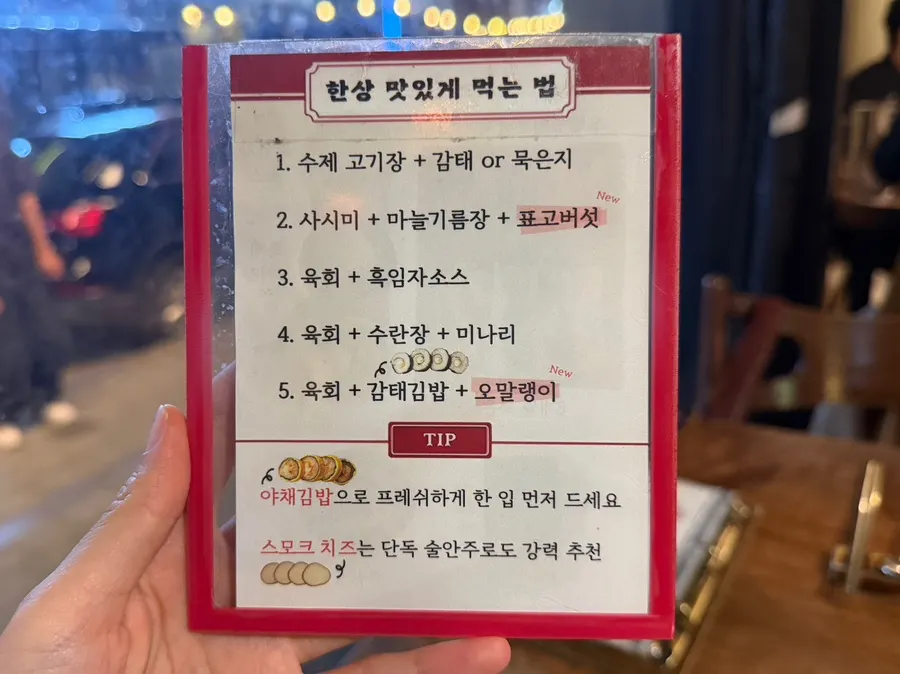 한상 맛있게 먹는 법
1. 수제 고기장 + 감태 or 묵은지
New
2. 사시미 + 마늘기름장 + 표고버섯
3. 육회 + 흑임자소스
4. 육회 + 수란장 + 미나리
New
5. 육회 + 감태김밥 + 오말랭이
TIP
야채김밥으로 프레쉬하게 한 입 먼저 드세요
스모크 치즈는 단독 술안주로도 강력 추천